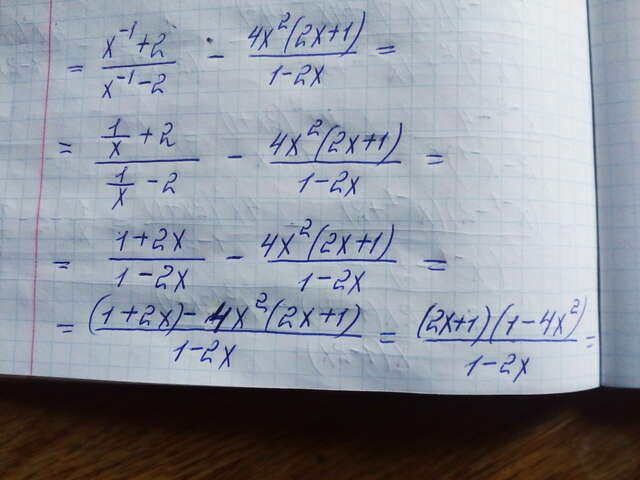 = (x⁻¹+2)/(x⁻¹-2) - (4x²(2x+1))/(1-2x) =
= (1/x +2)/(1/x -2) - (4x²(2x+1))/(1-2x) =
= (1+2x)/(1-2x) - (4x²(2x+1))/(1-2x) =
= ((1+2x)-4x²(2x+1))/(1-2x) = ((2x+1)(1-4x²))/(1-2x) =